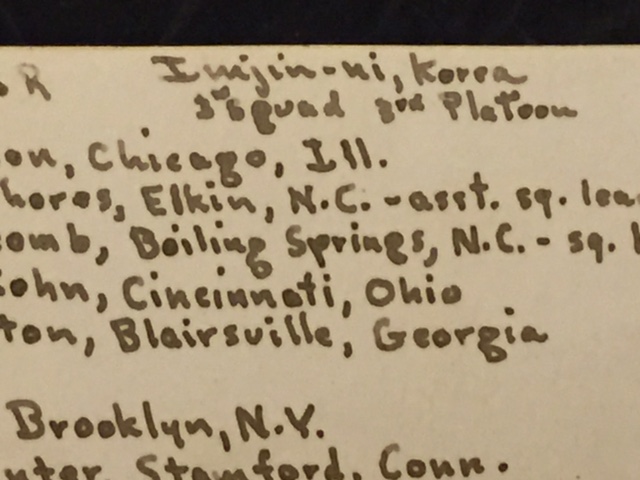 R Imjin-ni, Korea
Squad 3rd Platoon
on, Chicago, Ill.
hores, Elkin, N.C. - asst. sq. lea
comb, Boiling Springs, N.C. - sq. l
ohn, Cincinnati, Ohio
ton, Blairsville, Georgia
Brooklyn, N.Y.
nter, Stamford, Conn.